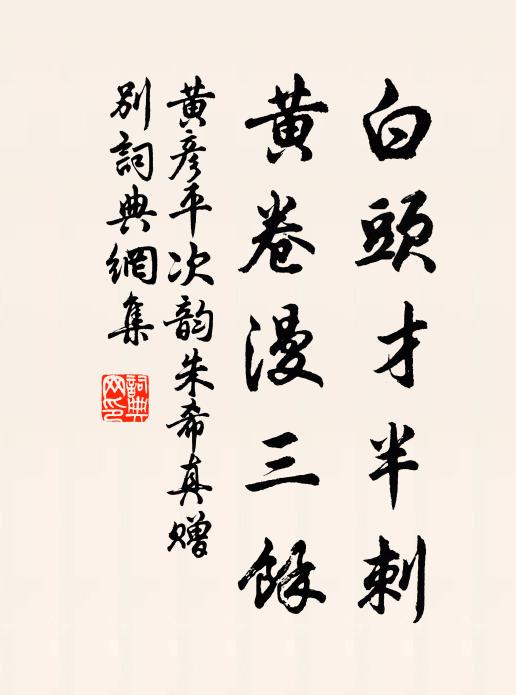 白頭才半刺
黃卷漫三餘
黃彥平次韵朱希真贈
別詞典網集
詞典
网印